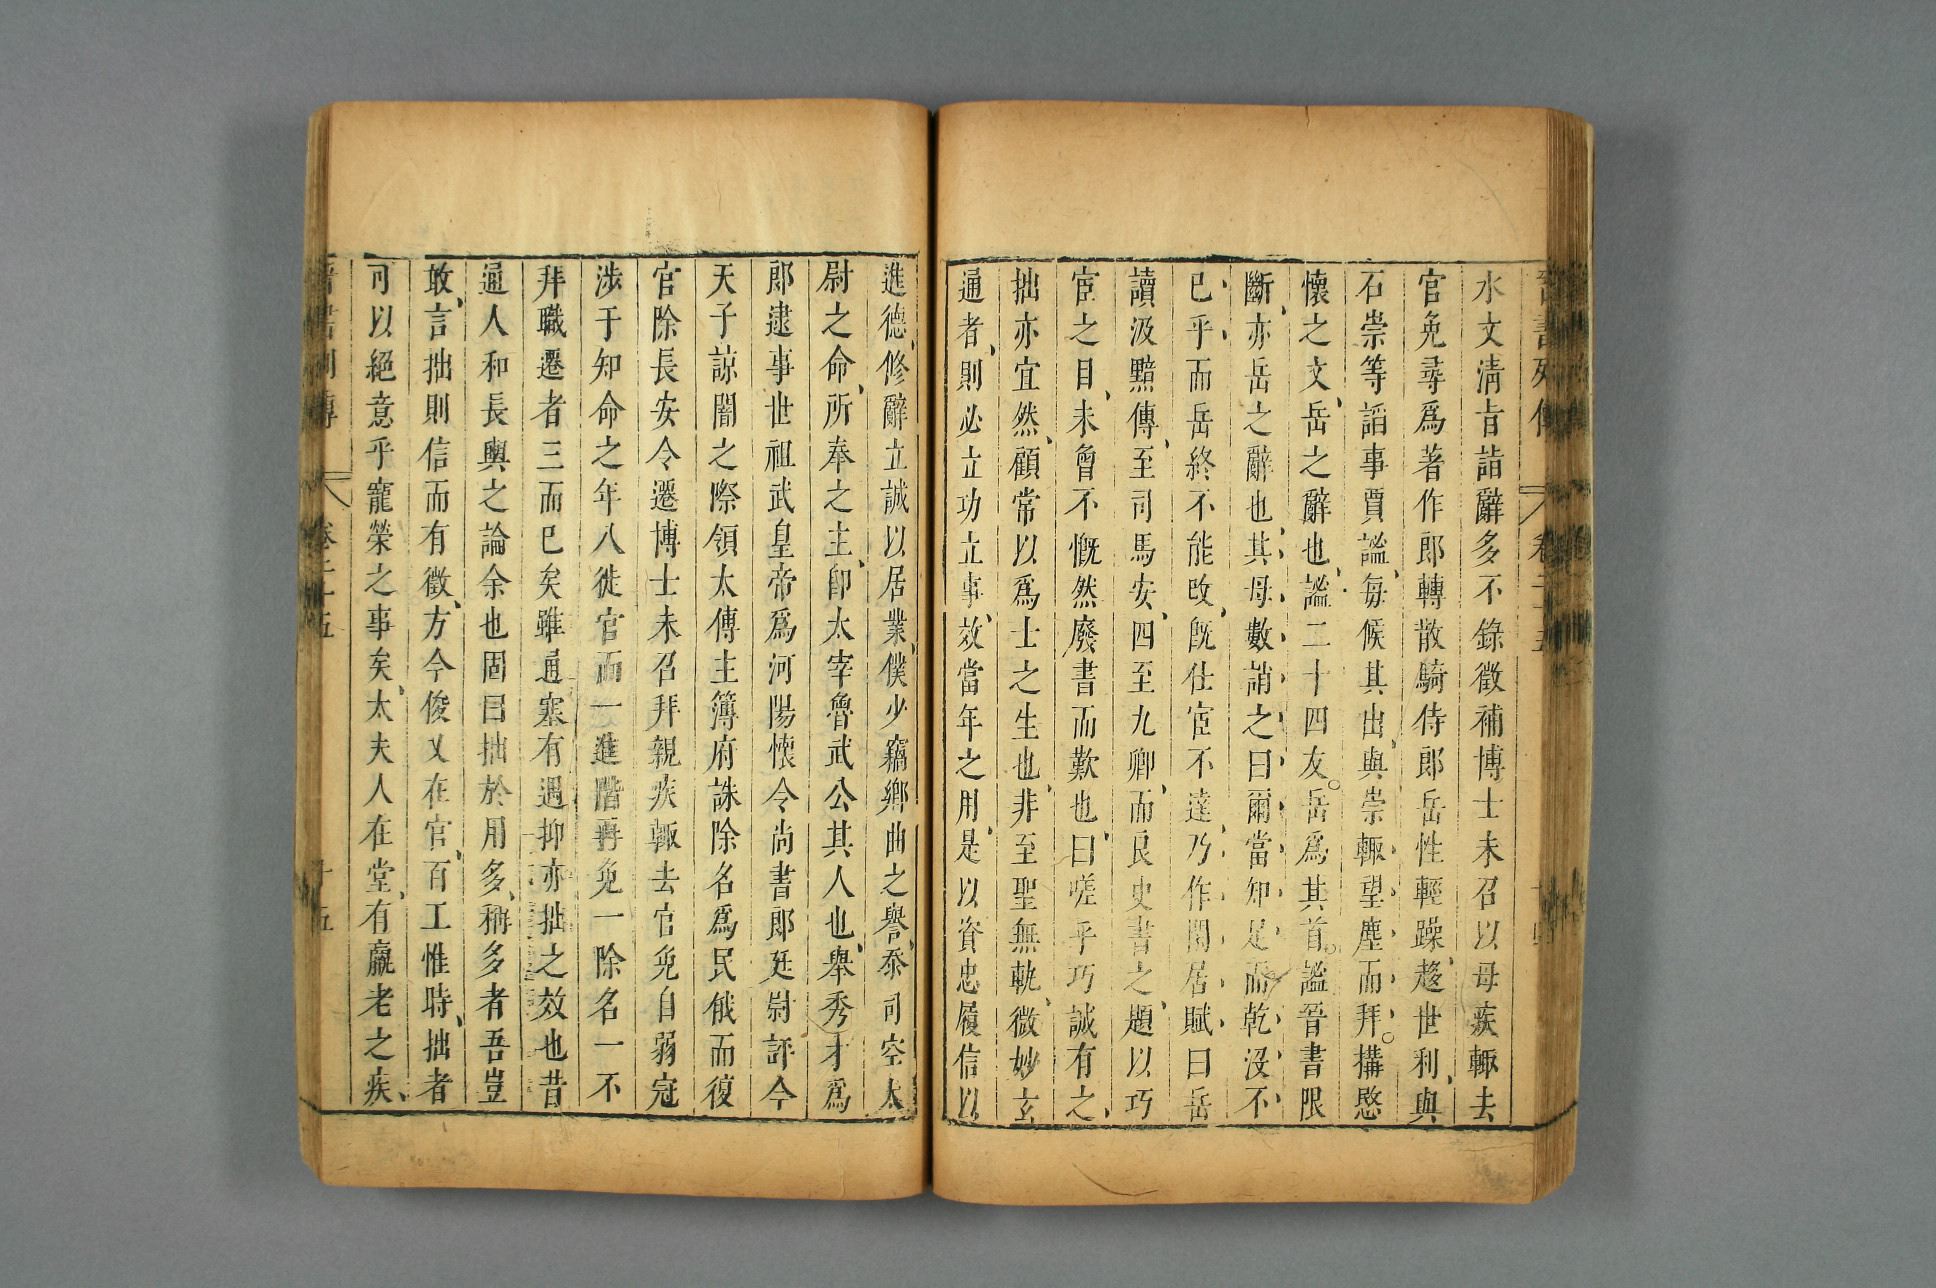 水文清旨詣辭多不錄徵補博士未召以母疾輒去
官免尋爲著作郎轉散騎侍郎岳性輕躁趍世利與
石崇等諂事賈謐每候其出與崇輒望塵而拜搆愍
懷之文岳之辭也謐二十四友岳爲其首謐晉書限
斷亦岳之辭也其母數誚之曰爾當知足而乾沒不
已乎而岳終不能改旣仕宦不達乃作閒居賦曰岳
讀汲黯傳至司馬安四至九卿而良史書之題以巧
宦之目未曾不慨然廢書而歎也曰嗟乎巧誠有之
拙亦宜然顧常以爲士之生也非至聖無軌微妙玄
通者則必立功立事效當年之用是以資忠履信以
進德修辭立誠以居業僕少竊鄉曲之譽忝司空太
尉之命所奉之主卽太宰魯武公其人也舉秀才爲
郎逮事世祖武皇帝爲河陽懷令尚書郎廷尉評今
天子諒闇之際領太傅主簿府誅除名爲民俄而復
官除長安令遷博士未召拜親疾輒去官免自弱冠
涉于知命之年八徙官而一進階再免一除名一不
拜職遷者三而已矣雖通塞有遇抑亦拙之效也昔
通人和長輿之論余也固曰拙於用多稱多者吾豈
敢言拙則信而有徵方今俊乂在官百工惟時拙者
可以絕意乎寵榮之事矣太夫人在堂有羸老之疾
晉書列傳 卷二十五 十五